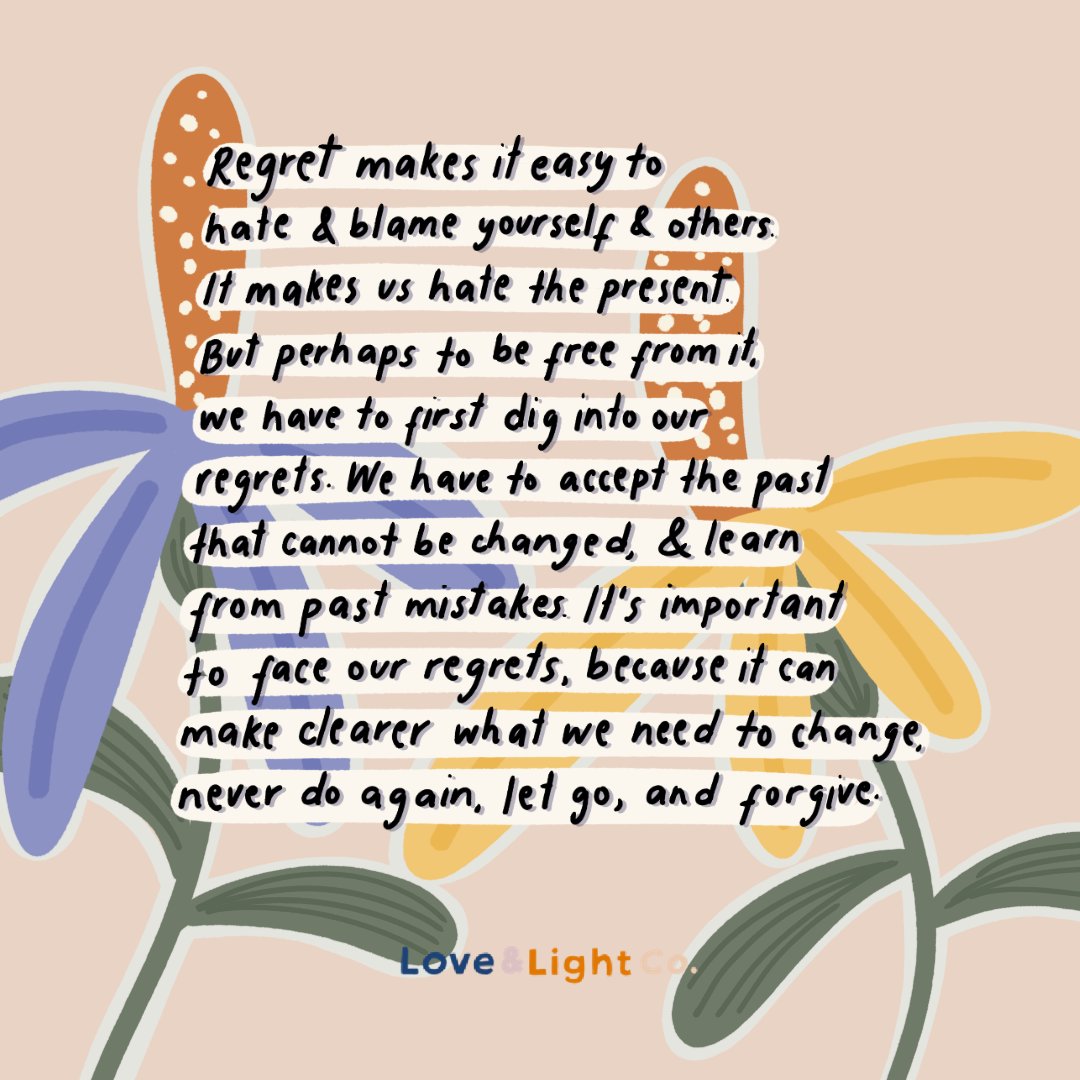 Regret makes it easy to
hate & blame yourself & others.
It makes us hate the present.
But perhaps to be free from it,
we have to first dig into our
regrets. We have to accept the past
that cannot be changed, & learn
from past mistakes. It's important
to face our regrets, because it can
make clearer what we need to change,
never do again, let go, and forgive.
Love & Light Co.